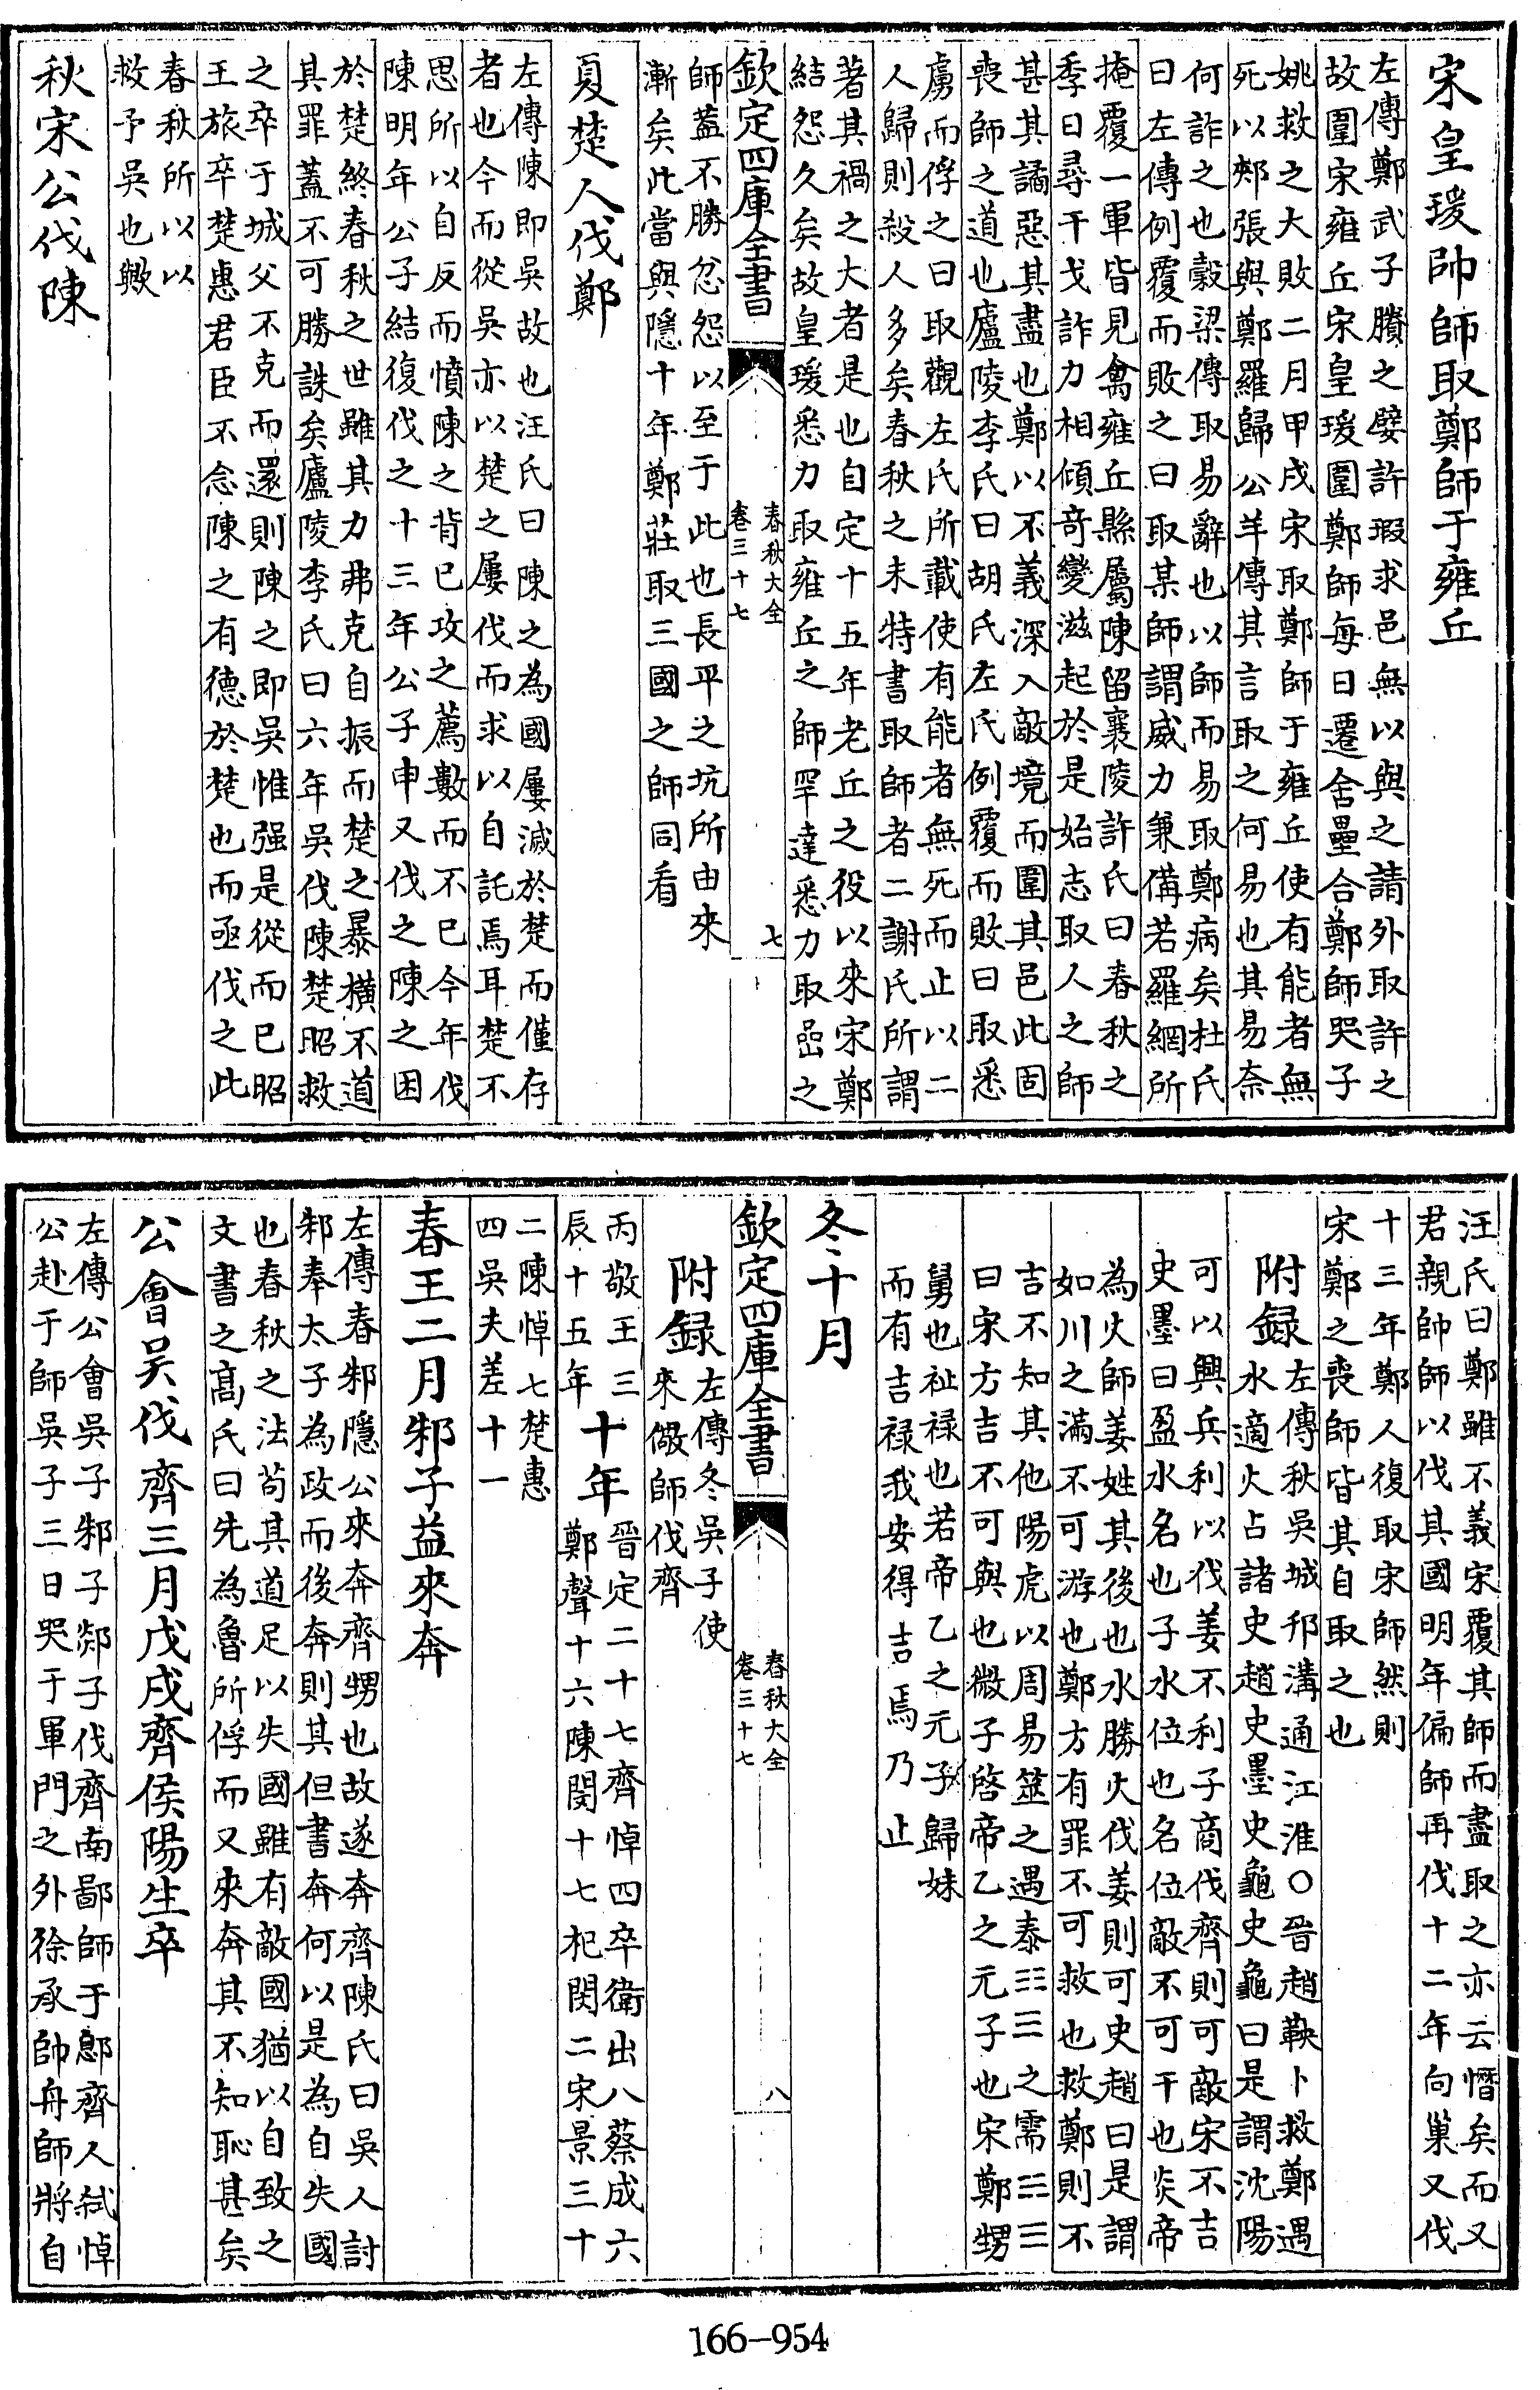 宋皇瑗帥師取鄭師于雍丘
左傳鄭武子賸之嬖許瑕求邑無以與之請外取許之
故圍宋雍丘宋皇瑗圍鄭師每日遷舍壘合鄭師哭子
姚救之大敗二月甲戌宋取鄭師于雍丘使有能者無
死以郟張與鄭羅歸公羊傳其言取之何易也其易奈
何詐之也穀梁傳取易辭也以師而易取鄭病矣杜氏
曰左傳例覆而敗之曰取某師謂威力兼備若羅網所
掩覆一軍皆見禽雍丘縣屬陳留襄陵許氏曰春秋之
季日尋干戈詐力相傾奇變滋起於是始志取人之師
甚其譎惡其盡也鄭以不義深入敵境而圍其邑此固
喪師之道也廬陵李氏曰胡氏左氏例覆而敗曰取悉
虜而俘之曰取觀左氏所載使有能者無死而止以二
人歸則殺人多矣春秋之末特書取師者二謝氏所謂
著其禍之大者是也自定十五年老丘之役以來宋鄭
結怨久矣故皇瑗悉力取雍丘之師罕達悉力取嵒之
欽定四庫全書
春秋大全
卷三十七
七
師蓋不勝忿怨以至于此也長平之坑所由來
漸矣此當與隱十年鄭莊取三國之師同看
夏楚人伐鄭
左傳陳即吳故也汪氏曰陳之為國屢滅於楚而僅存
者也今而從吳亦以楚之屢伐而求以自託焉耳楚不
思所以自反而憤陳之背已攻之薦數而不已今年伐
陳明年公子結復伐之十三年公子申又伐之陳之困
於楚終春秋之世雖其力弗克自振而楚之暴橫不道
其罪蓋不可勝誅矣廬陵李氏曰六年吳伐陳楚昭救
之卒于城父不克而還則陳之即吳惟强是從而已昭
王旅卒楚惠君臣不念陳之有德於楚也而亟伐之此
春秋所以以
救予吳也歟
秋宋公伐陳
汪氏曰鄭雖不義宋覆其師而盡取之亦云憯矣而又
君親帥師以伐其國明年偏師再伐十二年向巢又伐
十三年鄭人復取宋師然則
宋鄭之喪師皆其自取之也
附録
左傳秋吳城邗溝通江淮○晉趙鞅卜救鄭遇
水適火占諸史趙史墨史龜史龜曰是謂沈陽
可以興兵利以伐姜不利子商伐齊則可敵宋不吉
史墨曰盈水名也子水位也名位敵不可干也炎帝
為火師姜姓其後也水勝火伐姜則可史趙曰是謂
如川之滿不可游也鄭方有罪不可救也救鄭則不
吉不知其他陽虎以周易筮之遇泰☷☰之需☵☰
曰宋方吉不可與也微子啓帝乙之元子也宋鄭甥
舅也祉禄也若帝乙之元子歸妹
而有吉禄我安得吉焉乃止
冬十月
欽定四庫全書
春秋大全
卷三十七
八
附録
左傳冬吳子使
來儆師伐齊
丙敬王三
辰十五年
十年
晉定二十七齊悼四卒衛出八蔡成六
鄭聲十六陳閔十七杞閔二宋景三十
二陳悼七楚惠
四吳夫差十一
春王二月邾子益來奔
左傳春邾隱公來奔齊甥也故遂奔齊陳氏曰吳人討
邾奉太子為政而後奔則其但書奔何以是為自失國
也春秋之法苟其道足以失國雖有敵國猶以自致之
文書之高氏曰先為魯所俘而又來奔其不知恥甚矣
公會吳伐齊三月戊戌齊侯陽生卒
左傳公會吳子邾子郯子伐齊南鄙師于鄎齊人弒悼
公赴于師吳子三日哭于軍門之外徐承帥舟師將自
166-954